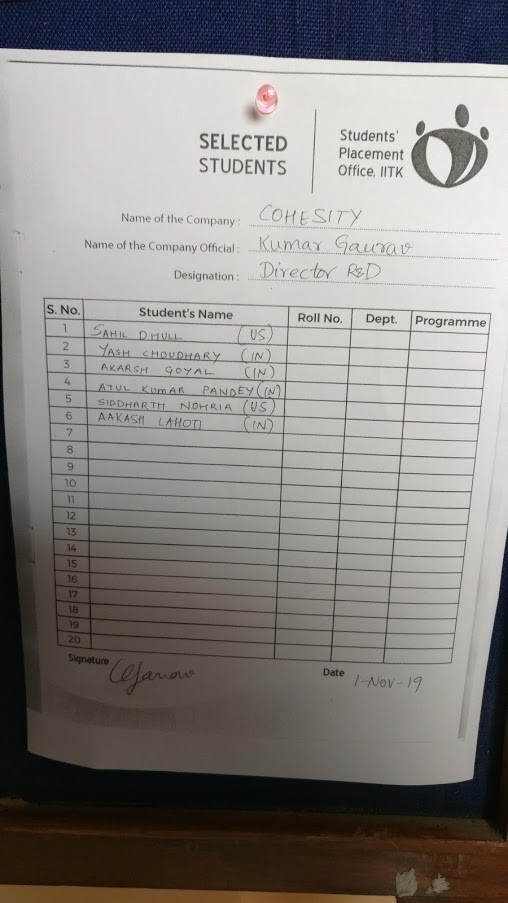 SELECTED
STUDENTS
Students'
Placement
Office, IITK
Name of the Company : COHESITY
Name of the Company Official : Kumar Gaurav
Designation : Director R&D
S. No. Student's Name Roll No. Dept. Programme
1 SAHIL DHULL (US)
2 YASH CHOUDHARY (IN)
3 AKARSH GOYAL (IN)
4 ATUL KUMAR PANDEY (IN)
5 SIDDHARTH NOHRIA (US)
6 AAKASH LAHOTI (IN)
7
8
9
10
11
12
13
14
15
16
17
18
19
20
Signature
Date 1-Nov-19